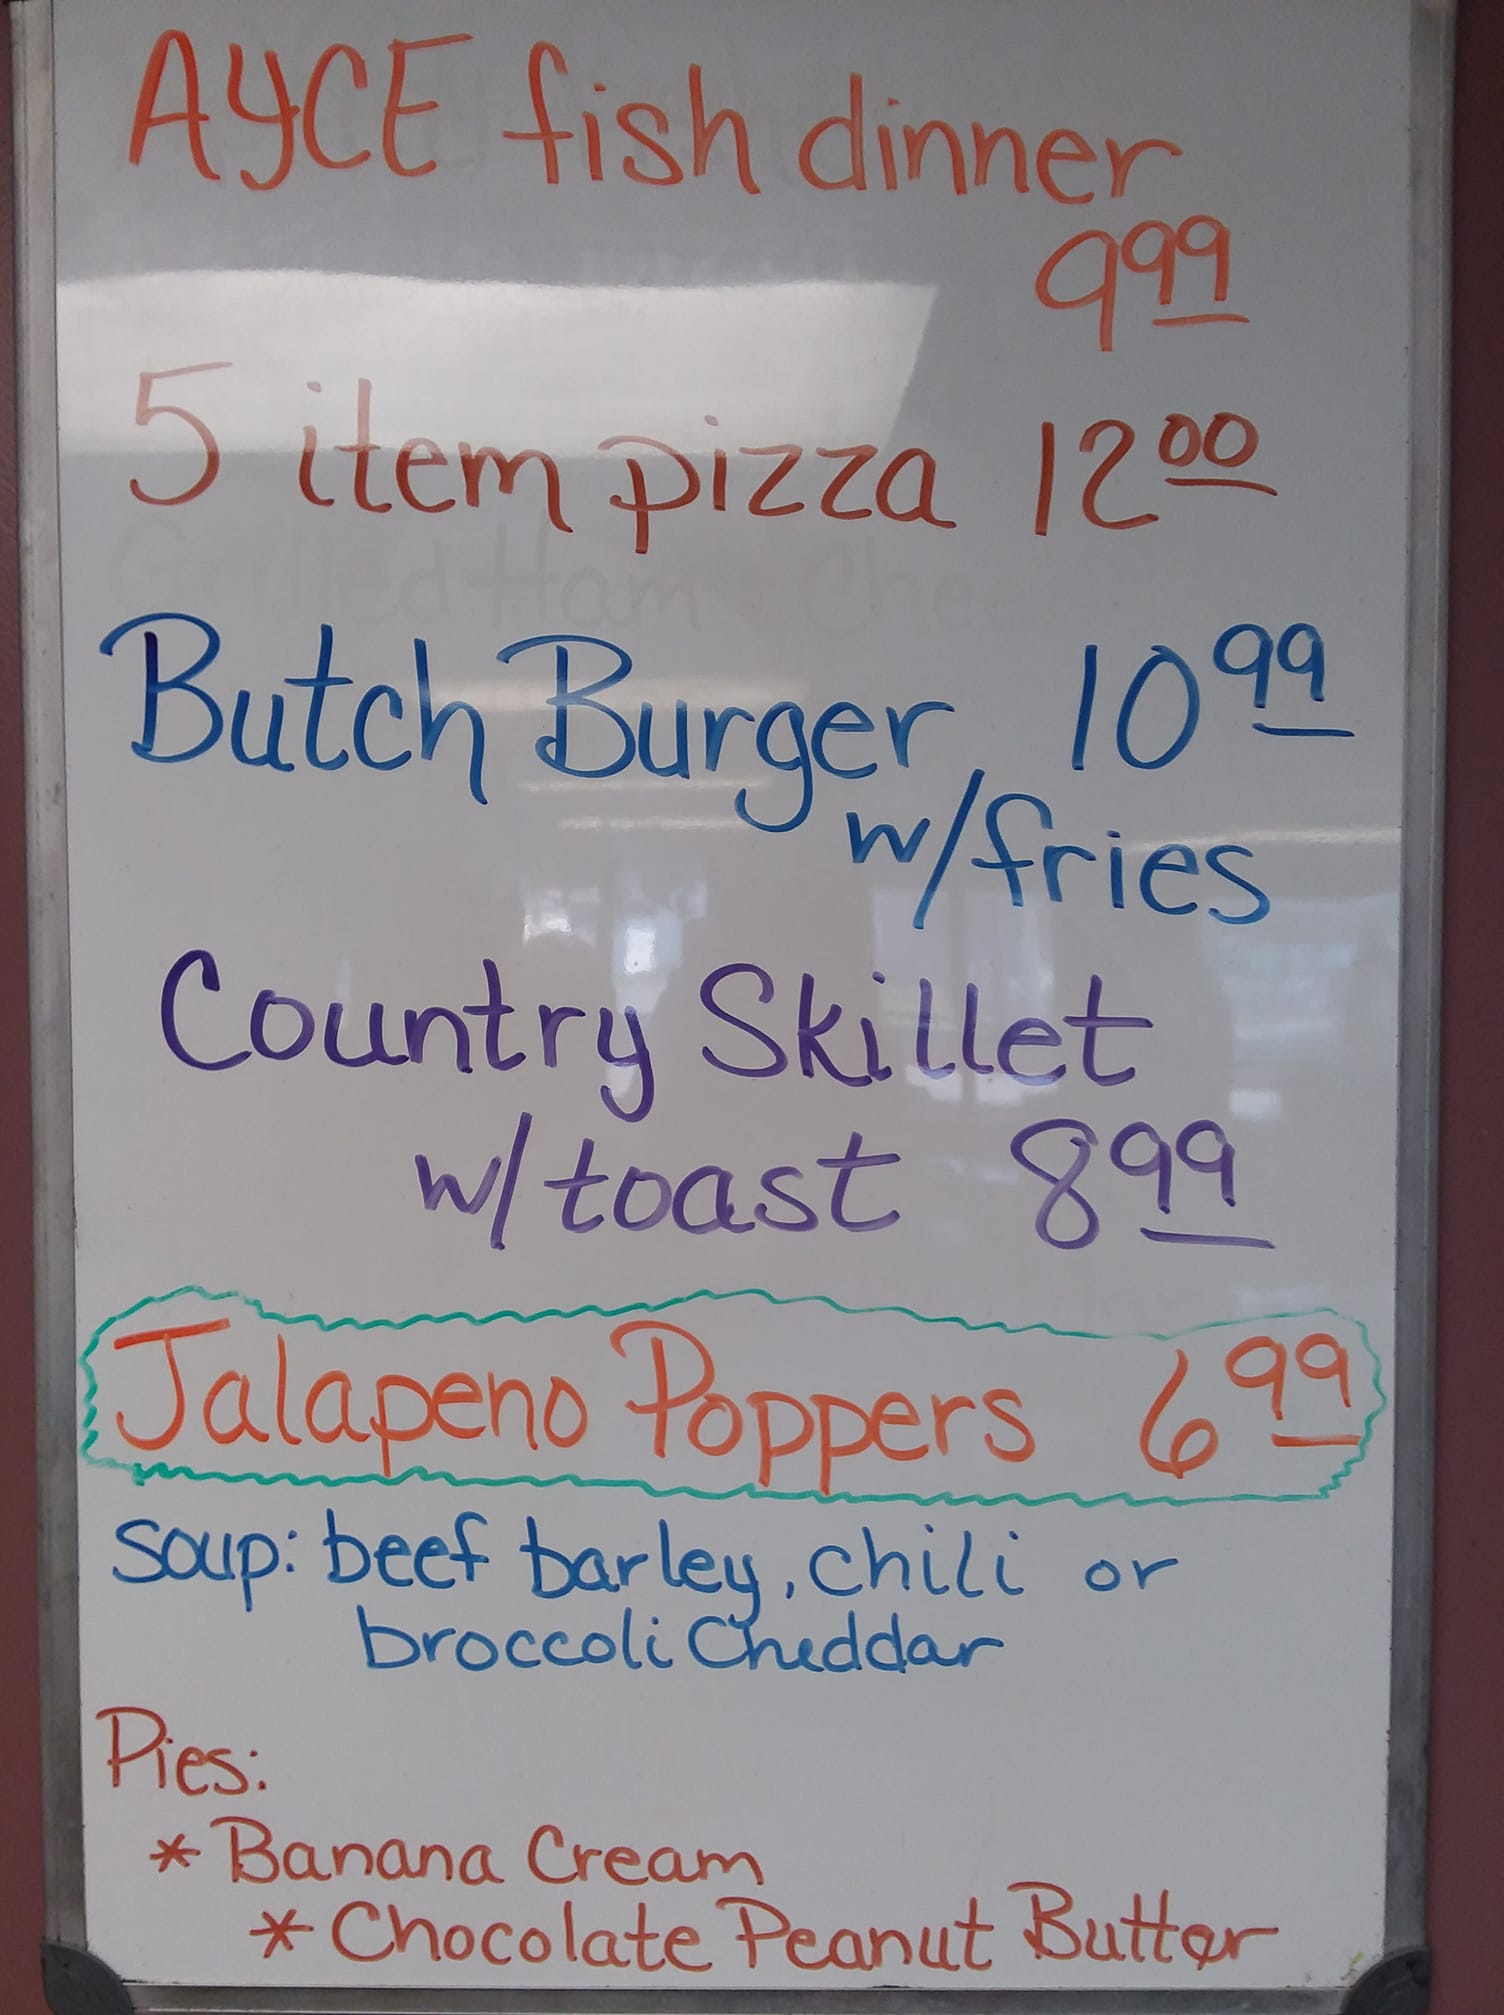 AYCE fish dinner
9.99
5 item pizza 12.00
Butch Burger 10.99
w/fries
Country Skillet
w/toast 8.99
Jalapeno Poppers 6.99
Soup: beef barley, chili or
broccoli Cheddar
Pies:
* Banana Cream
* Chocolate Peanut Butter